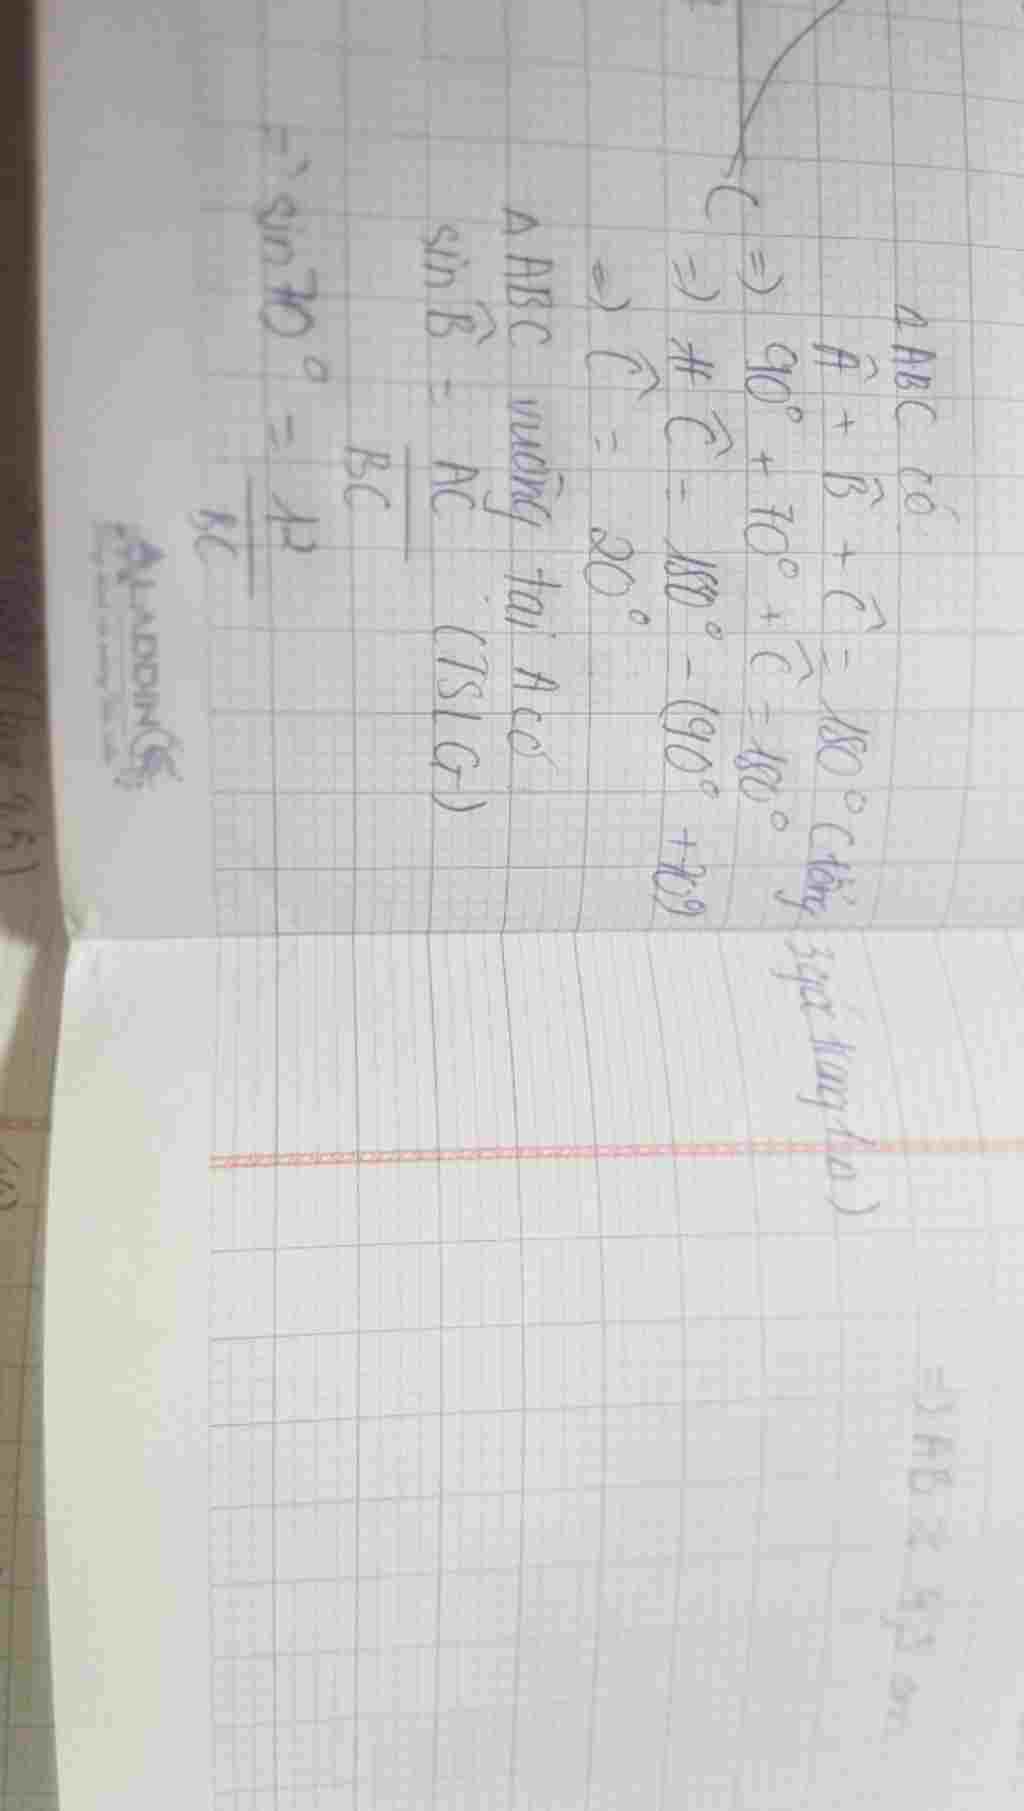 ΔABC có
Â + B̂ + Ĉ = 180° (tổng 3 góc trong 1 Δ)
C => 90° + 70° + Ĉ = 180°
=> Ĉ = 180° - (90° + 70°)
=> Ĉ = 20°
Δ ABC vuông tại A có
sin B̂ = AC/BC (TSLG)
=> sin 70° = 12/BC
ALADDIN
=> AB ≈ 4,3 cm